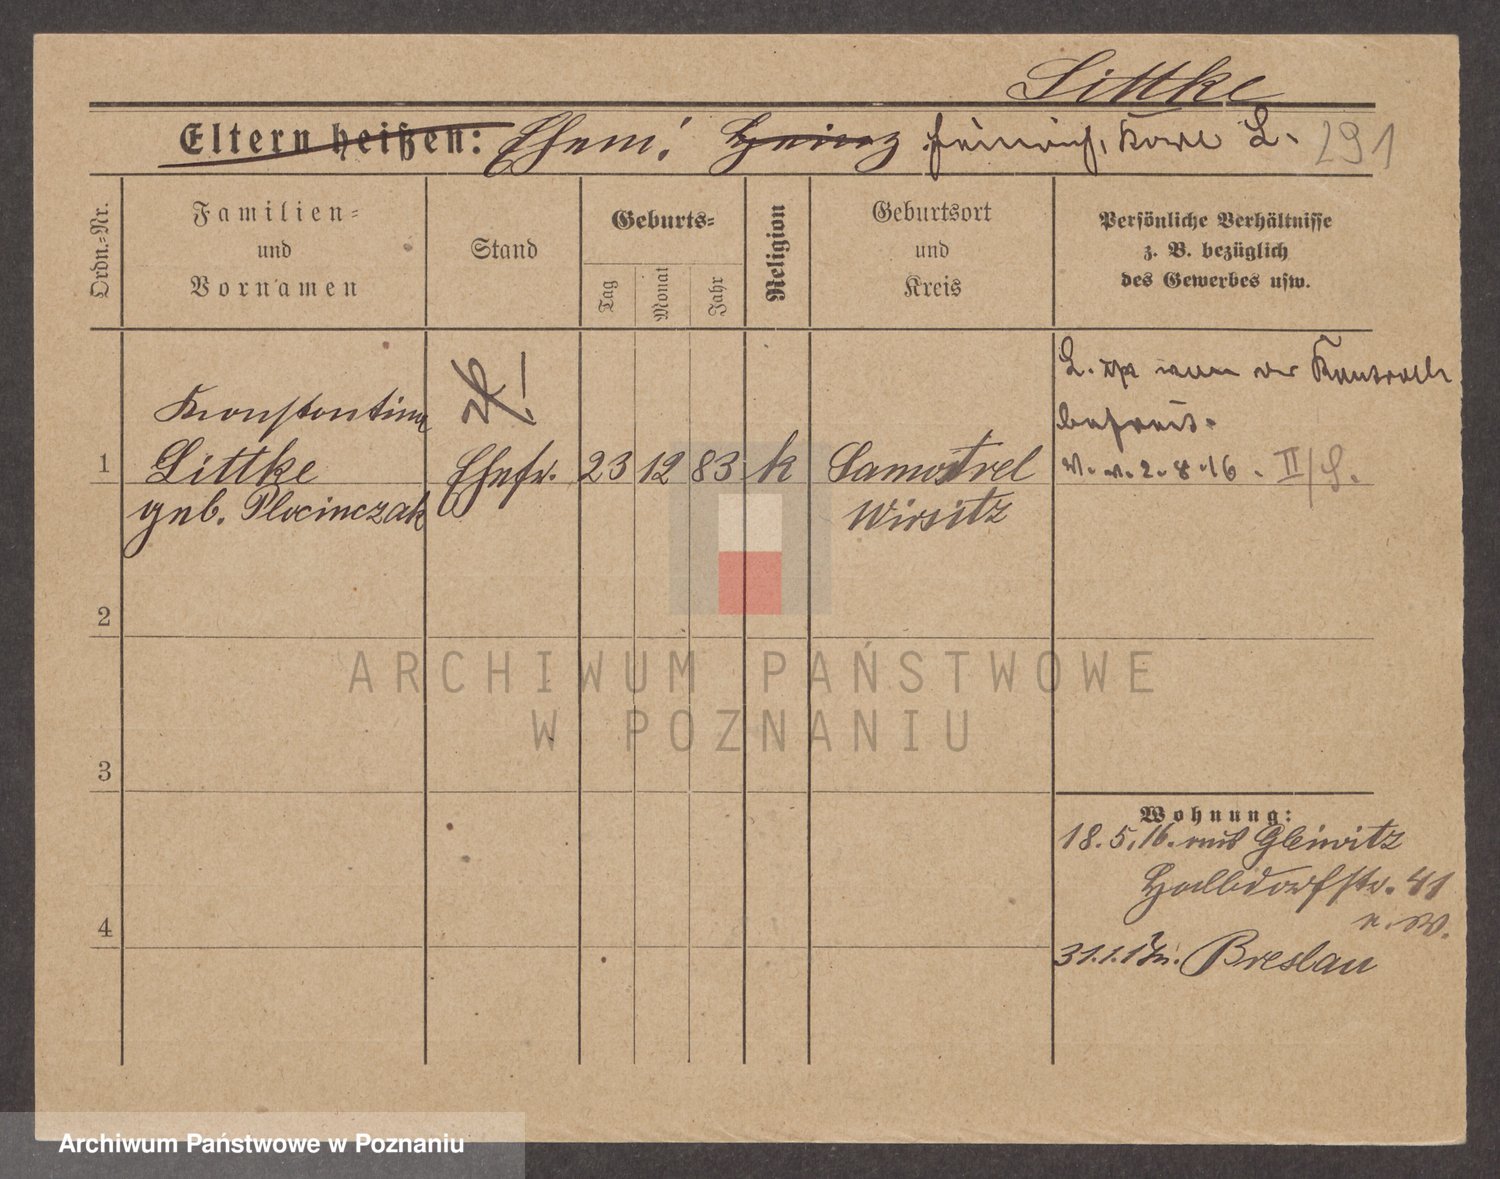 Littke
Eltern heißen: Ehem: Heinz Heinrich, Karl L. 291
Ordn.-Nr.
Familien-
und
Vornamen
Stand
Geburts-
Tag
Monat
Jahr
Religion
Geburtsort
und
Kreis
Persönliche Verhältnisse
z. B. bezüglich
des Gewerbes usw.
1
Konstantina
Littke
geb. Plocinczak
Ehefr.
23 12 83 k
Samostrel
Wirsitz
L. ist von der Kontrolle
befreit.
2.8.16. II/
2
3
4
Wohnung:
18.5.16. aus Gleiwitz
Halbdorfstr. 41
31.1.17 n. Breslau
ARCHIWUM PAŃSTWOWE
W POZNANIU
Archiwum Państwowe w Poznaniu